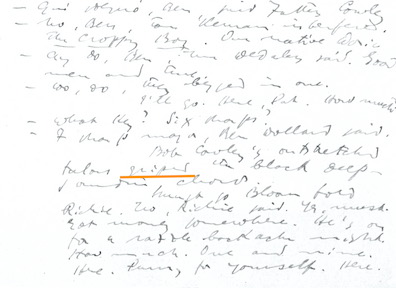 — Qui sdegno, Ben, said Father Cowley
— No, Ben, Tom Kernan interfered.
The Croppy Boy. Our native Doric
— Ay do, Ben, Mr Dedalus said. Good
men and true.
— Do, do, they begged in one.
I'll go. Here, Pat. How much?
— What key? Six sharps?
— F sharp major, Ben Dollard said.
Bob Cowley's outstretched
talons griped the black deep-
sounding chords.
Must go Bloom told
Richie. No, Richie said. Yes, must.
Got money somewhere. He's on
for a razzle backache night.
How much. One and nine.
Here. Penny for yourself. Here.